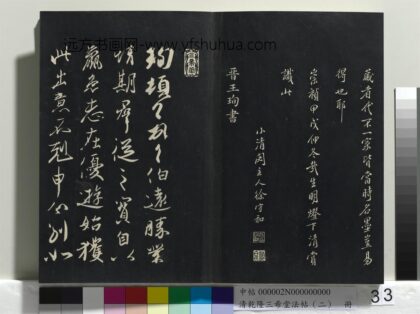 远方书画网-www.yfshuhua.com
藏者代不一家皆當時名墨豈易
得也耶
崇禎甲戌仲冬哉生明燈下清賞
識此
小清閟主人徐守和
晋王珣書
珣頓首頓首伯遠勝業
情期羣從之寶自以
羸患志在優遊始獲
此出意不剋申分別如
中帖 000002N000000000
清乾隆三希堂法帖（二） 冊
33